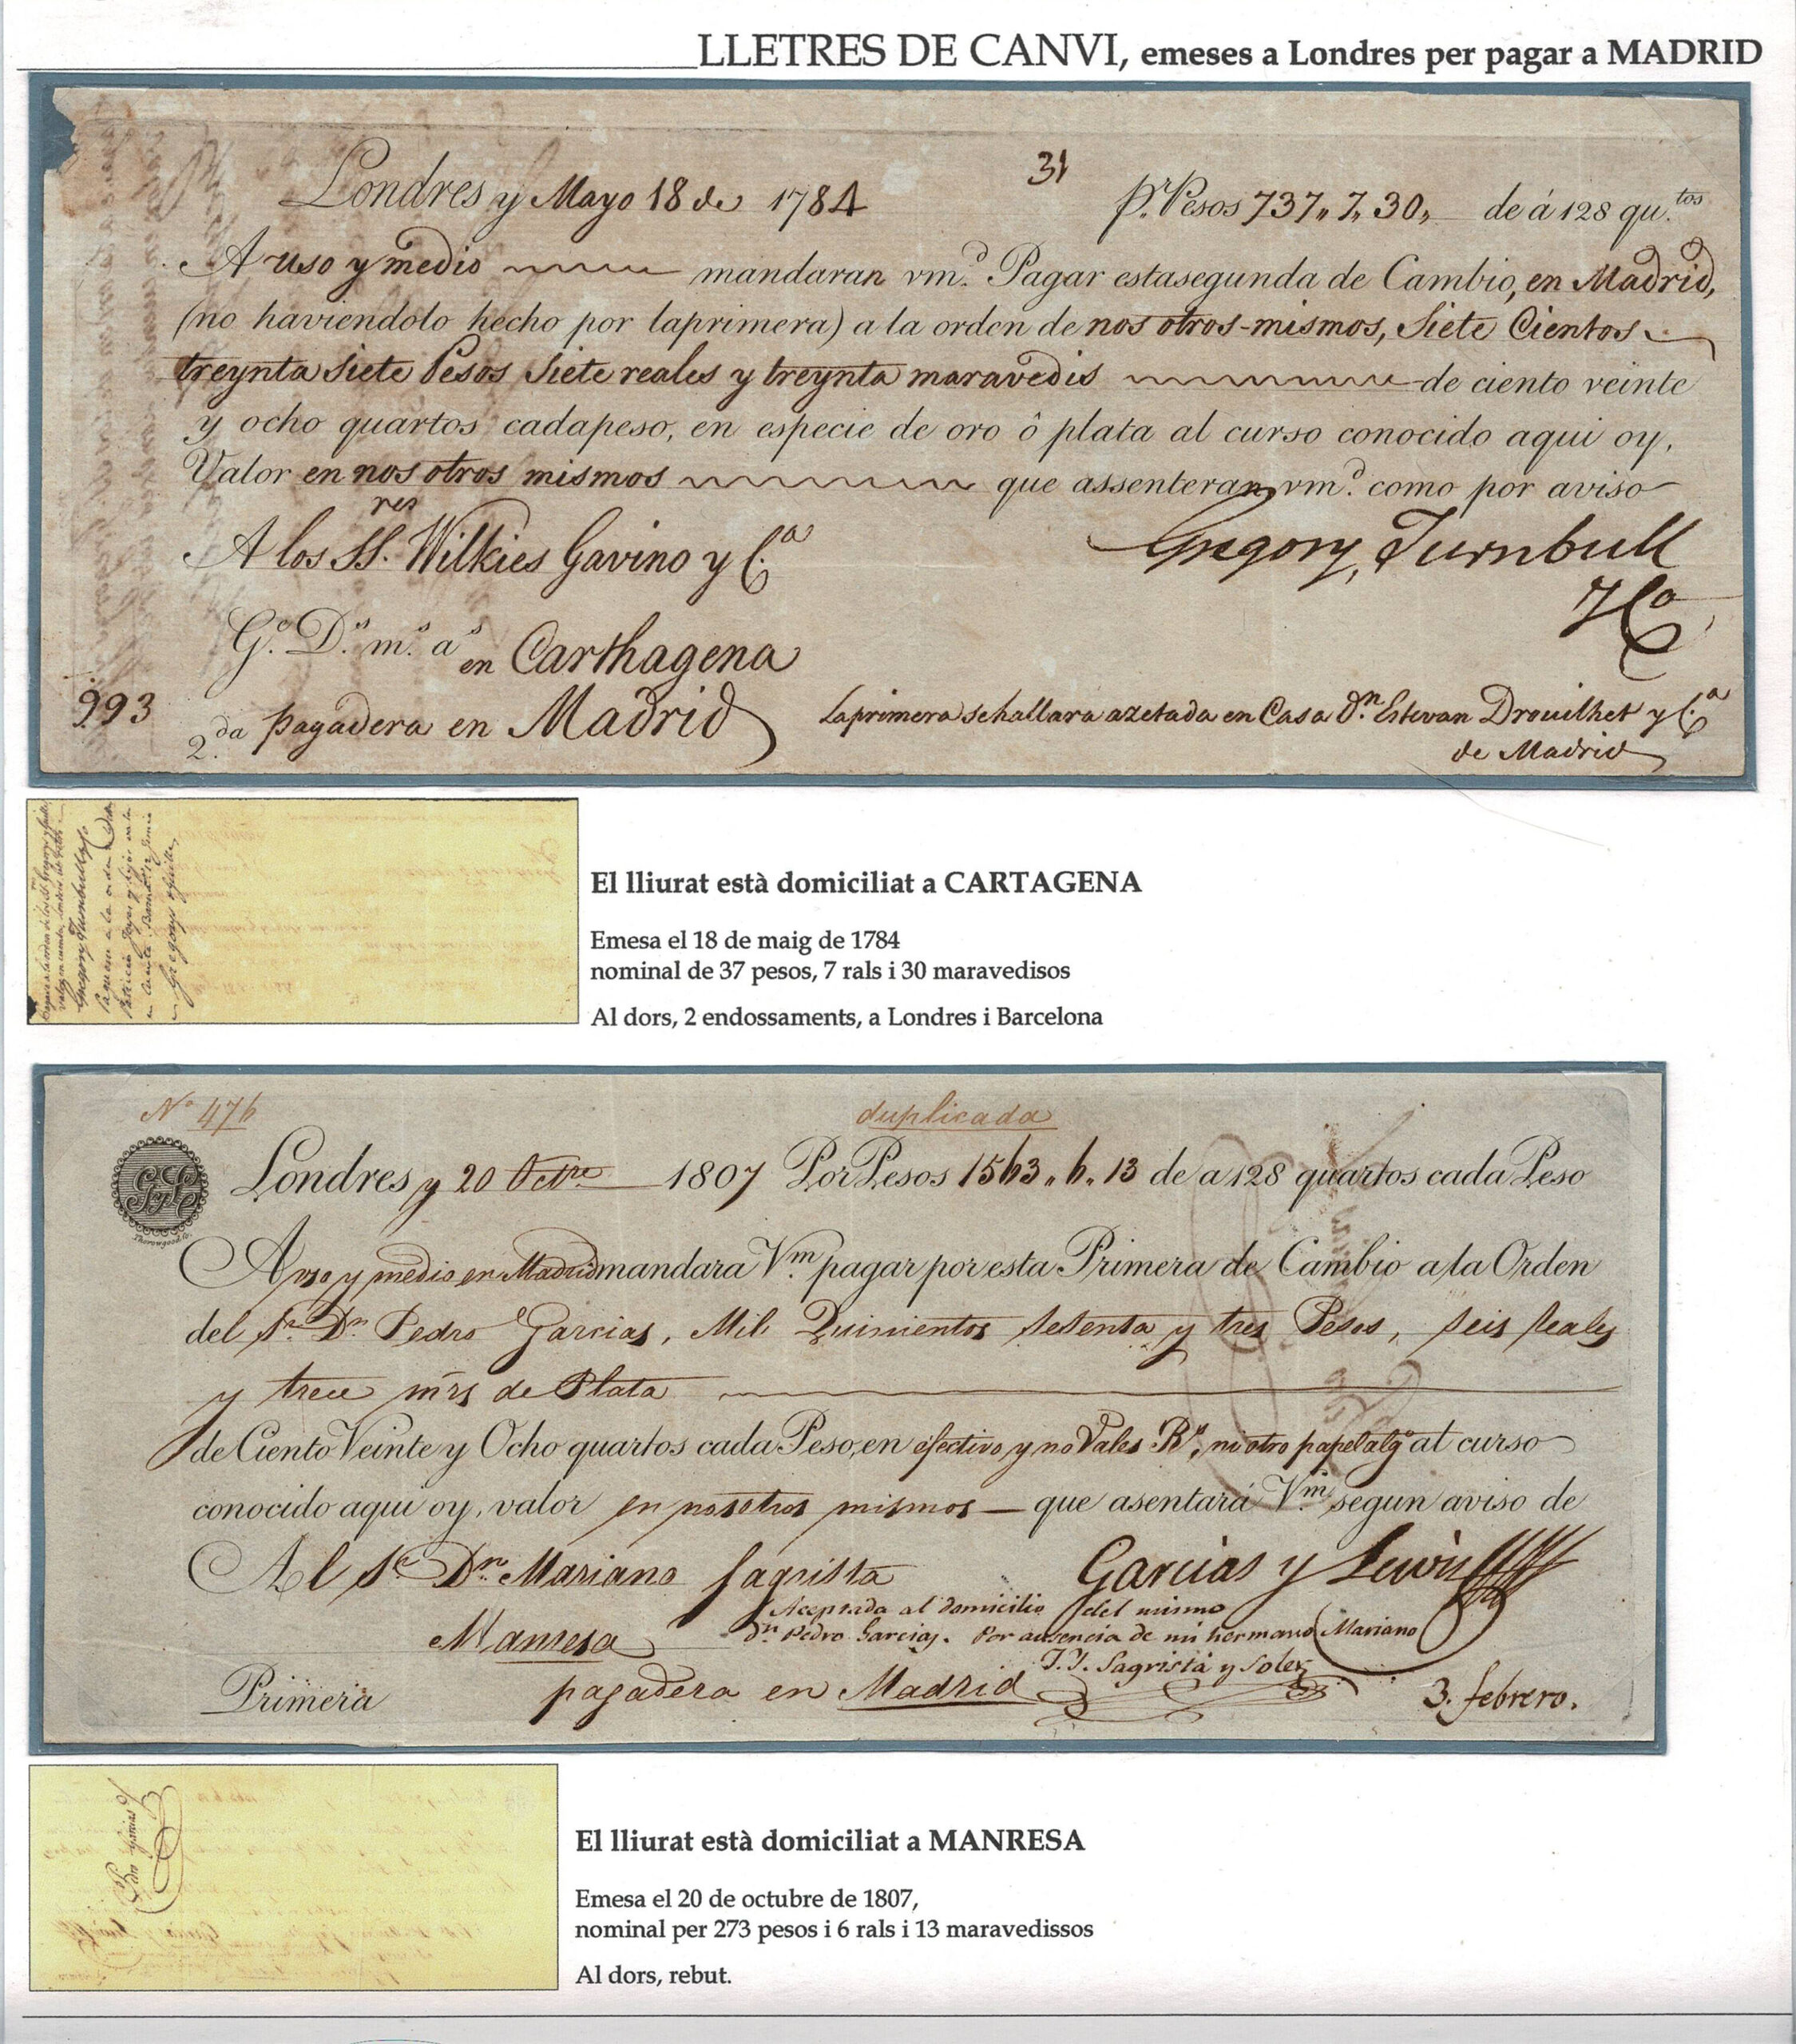 LLETRES DE CANVI, emeses a Londres per pagar a MADRID
31
Londres y Mayo 18 de 1784 pr. Pesos 737,, 7,, 30,, de á 128 qu.tos
A uso y medio mandaran vm.d Pagar estasegunda de Cambio, en Madrid,
(no haviendolo hecho por laprimera) a la orden de nos otros-mismos, Siete Cientos
treynta siete Pesos Siete reales y treynta maravedis de ciento veinte
y ocho quartos cadapeso, en especie de oro ô plata al curso conocido aqui oy,
Valor en nos otros mismos que assenteran vm.d como por aviso
A los SS.res Wilkies Gavino y C.a
Gregory, Turnbull
y Co
G.e D.s m.s a.s en Carthagena
993
2.da pagadera en Madrid
Laprimera sehallara azetada en Casa Dn. Estevan Drouilhet y C.a
de Madrid
Gregory Turnbull y Co
El lliurat està domiciliat a CARTAGENA
Emesa el 18 de maig de 1784
nominal de 37 pesos, 7 rals i 30 maravedisos
Al dors, 2 endossaments, a Londres i Barcelona
No 476 duplicada
GyL
Londres y 20 Octre 1807 Por Pesos 1563,, 6,, 13 de a 128 quartos cada Peso
A uso y medio en Madrid mandara Vm. pagar por esta Primera de Cambio a la Orden
del Sr. Dn Pedro Garcias, Mil Quinientos sesenta y tres Pesos, seis reales
y trece mrs de Plata
de Ciento Veinte y Ocho quartos cada Peso, en efectivo y no Vales Rs, ni otro papel algo al curso
conocido aqui oy, valor en nosotros mismos que asentará Vm. segun aviso de
Al Sr Dn. Mariano Sagrista
Garcias y Lewis
Aceptada al domicilio del mismo
Dn Pedro Garcias. Por ausencia de mi hermano Mariano
Manresa
J. Y. Sagristá y Soler
Primera pagadera en Madrid 3. febrero.
Pedro Garcias
El lliurat està domiciliat a MANRESA
Emesa el 20 de octubre de 1807,
nominal per 273 pesos i 6 rals i 13 maravedissos
Al dors, rebut.